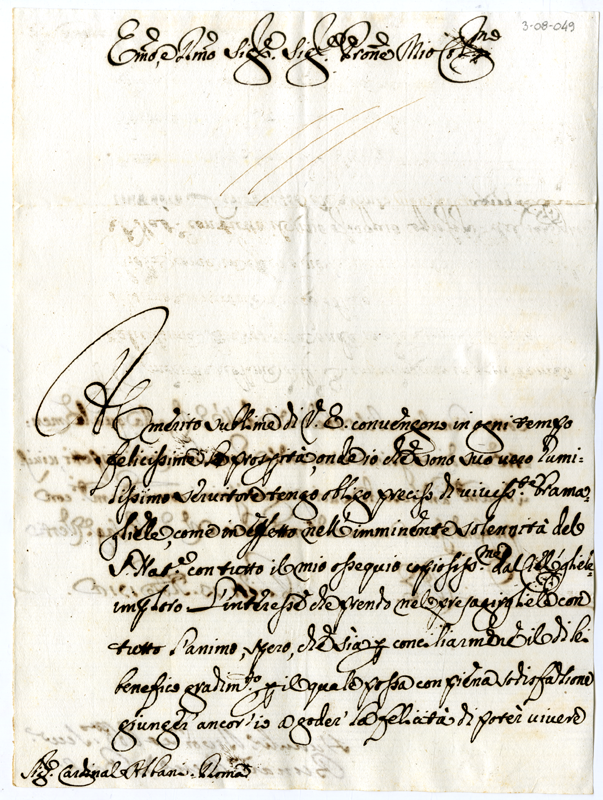 3-08-049
Emo, e Rmo Sigr. Sigr. Prone Mio Colmo
Al merito sublime di V. E. convengono in ogni tempo
felicissime le prosperità, onde io che sono suo vero humi-
lissimo servitore tengo obligo preciso di vivissme. brama-
gliele, come in effetto nell'imminente solennità del
S. Nat.e con tutto il mio ossequio copiosissme dal Ciel gliele
imploro. L'interesse che prendo nel presagirgliele con
tutto l'animo, spero, che sia p conciliarmene il di lei
benefico gradimto. p il quale possa con piena sodisfatione
giunger ancor io a goder la felicità di poter vivere
Sigr. Cardinal Albani. Roma